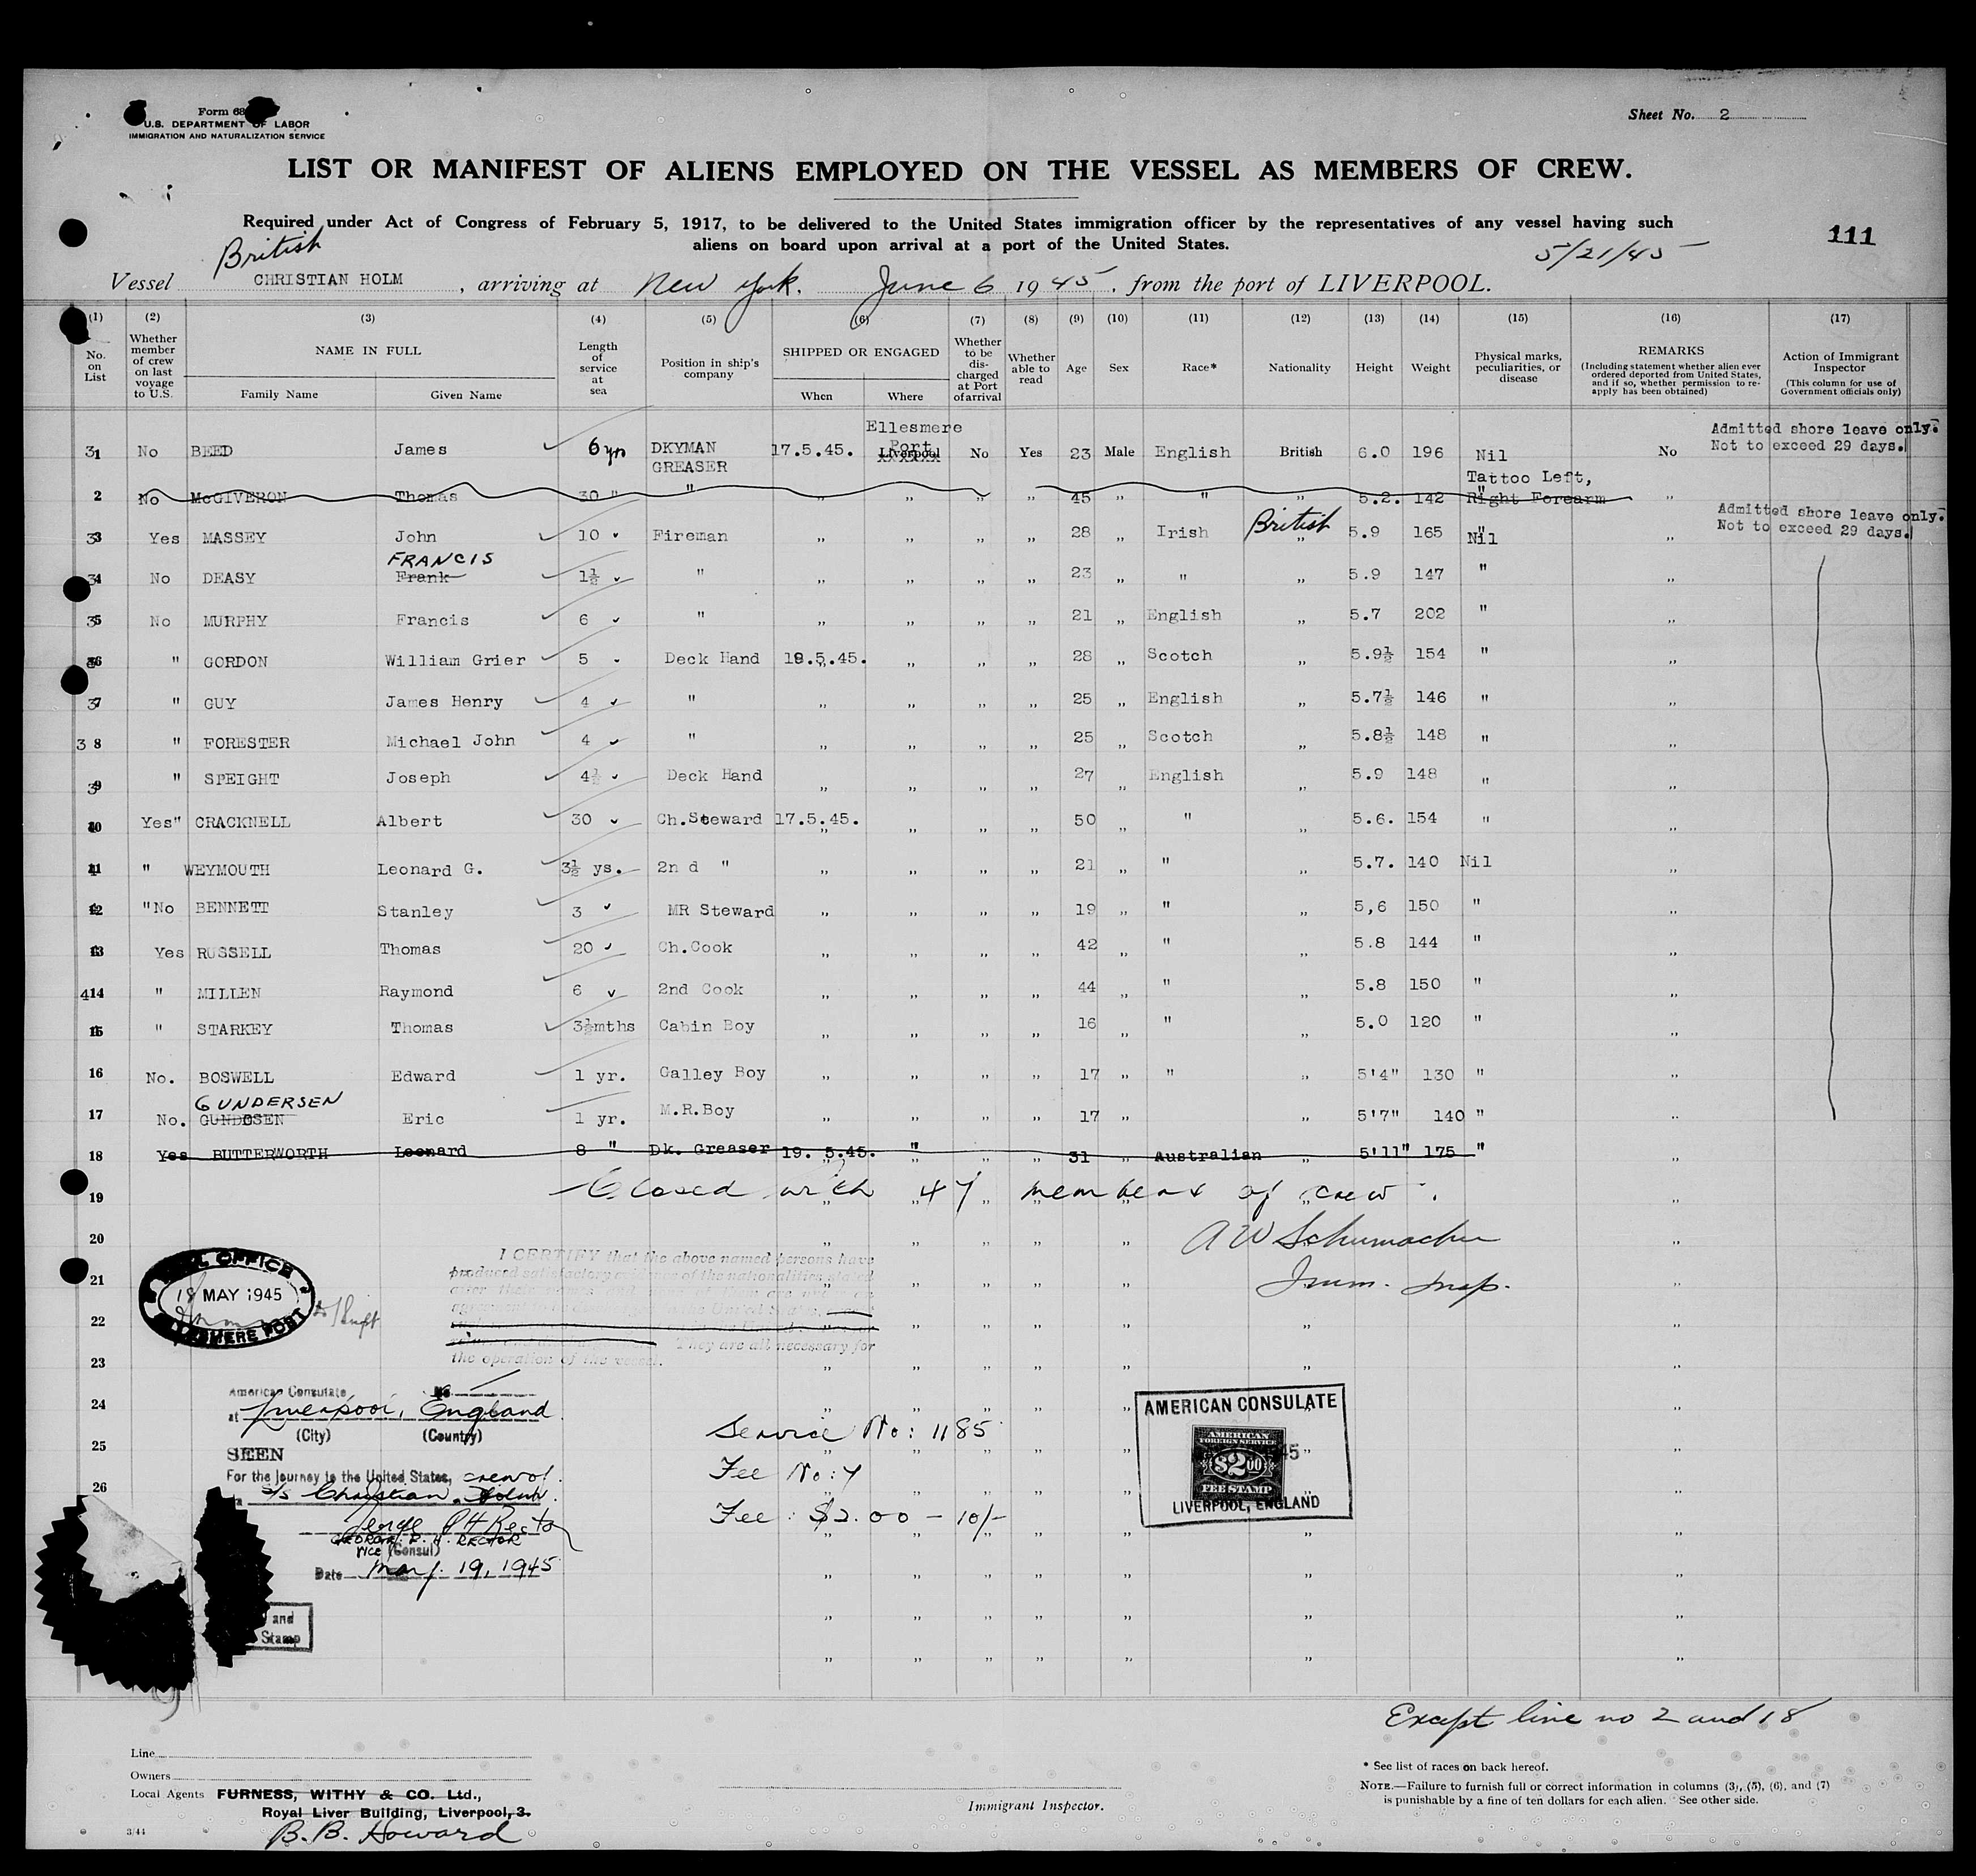 Form 68
U.S. DEPARTMENT OF LABOR
IMMIGRATION AND NATURALIZATION SERVICE
Sheet No. 2
LIST OR MANIFEST OF ALIENS EMPLOYED ON THE VESSEL AS MEMBERS OF CREW.
Required under Act of Congress of February 5, 1917, to be delivered to the United States immigration officer by the representatives of any vessel having such
aliens on board upon arrival at a port of the United States.
111
British
5/21/45
Vessel CHRISTIAN HOLM, arriving at New York. June 6 1945, from the port of LIVERPOOL.
(1) (2) (3) (4) (5) (6) (7) (8) (9) (10) (11) (12) (13) (14) (15) (16) (17)
No. on List
Whether member of crew on last voyage to U.S.
NAME IN FULL
Family Name Given Name
Length of service at sea
Position in ship's company
SHIPPED OR ENGAGED
When Where
Whether to be discharged at Port of arrival
Whether able to read
Age
Sex
Race*
Nationality
Height
Weight
Physical marks, peculiarities, or disease
REMARKS
(Including statement whether alien ever ordered deported from United States, and if so, whether permission to reapply has been obtained)
Action of Immigrant Inspector
(This column for use of Government officials only)
31 No BEED James 6 yrs DKYMAN GREASER 17.5.45. Ellesmere Port Liverpool No Yes 23 Male English British 6.0 196 Nil No Admitted shore leave only. Not to exceed 29 days.
2 No McGIVERON Thomas 30 " " „ „ „ „ 45 „ " „ 5.2. 142 Tattoo Left, Right Forearm „
33 Yes MASSEY John 10 Fireman „ „ „ „ 28 „ Irish British 5.9 165 Nil „ Admitted shore leave only. Not to exceed 29 days.
34 No DEASY FRANCIS Frank 1½ " „ „ „ „ 23 „ " „ 5.9 147 " „
35 No MURPHY Francis 6 " „ „ „ „ 21 „ English „ 5.7 202 " „
36 " GORDON William Grier 5 Deck Hand 19.5.45. „ „ „ 28 „ Scotch „ 5.9½ 154 " „
37 " GUY James Henry 4 " „ „ „ „ 25 „ English „ 5.7½ 146 " „
38 " FORESTER Michael John 4 " „ „ „ „ 25 „ Scotch „ 5.8½ 148 " „
39 " SPEIGHT Joseph 4½ Deck Hand „ „ „ „ 27 „ English „ 5.9 148 " „
10 Yes" CRACKNELL Albert 30 Ch.Steward 17.5.45. „ „ „ 50 „ " „ 5.6. 154 " „
11 " WEYMOUTH Leonard G. 3½ ys. 2nd " „ „ „ „ 21 „ " „ 5.7. 140 Nil „
12 "No BENNETT Stanley 3 MR Steward „ „ „ „ 19 „ " „ 5,6 150 " „
13 Yes RUSSELL Thomas 20 Ch.Cook „ „ „ „ 42 „ " „ 5.8 144 " „
414 " MILLEN Raymond 6 2nd Cook „ „ „ „ 44 „ " „ 5.8 150 " „
15 " STARKEY Thomas 3½mths Cabin Boy „ „ „ „ 16 „ " „ 5.0 120 " „
16 No. BOSWELL Edward 1 yr. Galley Boy „ „ „ „ 17 „ " „ 5'4" 130 " „
GUNDERSEN
17 No. GUNDOSEN Eric 1 yr. M.R.Boy „ „ „ „ 17 „ „ 5'7" 140 " „
18 Yes BUTTERWORTH Leonard 8 " Dk. Greaser 19. 5.45. " „ „ 31 „ Australian „ 5'11" 175 " „
19 Closed with 47 members of crew.
20 A W Schumacher
21 Imm. Insp.
22
23
24
25
26
POOL OFFICE
18 MAY 1945
ELLESMERE PORT
I CERTIFY that the above named persons have
produced satisfactory evidence of the nationalities stated
They are all necessary for
the operation of the vessel.
American Consulate No.
at Liverpool, England
(City) (Country)
SEEN
For the Journey to the United States, crew of
s/s Christian Holm.
George P H Rector
GEORGE P. H. RECTOR
Vice (Consul)
Date May. 19, 1945
and
Stamp
Service No: 1185
Fee No: 7
Fee: $2.00 – 10/-
AMERICAN CONSULATE
AMERICAN
FOREIGN SERVICE
45
$2.00
FEE STAMP
LIVERPOOL, ENGLAND
Except line no 2 and 18
Line
Owners
Local Agents FURNESS, WITHY & CO. Ltd.,
Royal Liver Building, Liverpool, 3.
B. B. Howard
3/44
Immigrant Inspector.
* See list of races on back hereof.
NOTE.—Failure to furnish full or correct information in columns (3), (5), (6), and (7)
is punishable by a fine of ten dollars for each alien. See other side.